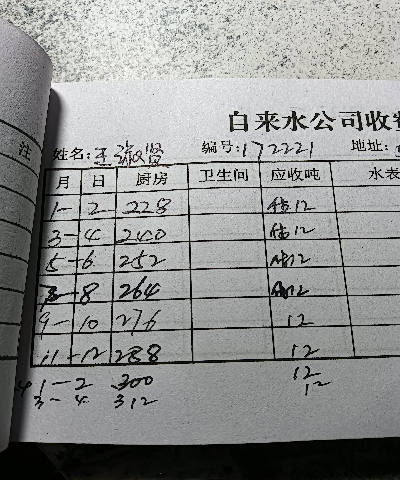 自来水公司收费
注
姓名:王淑贤 编号:172221 地址:
月 日 厨房 卫生间 应收吨 水表
1-2 228 估12
3-4 240 估12
5-6 252 估12
7-8 264 估12
9-10 276 12
11-12 288 12
1-2 300 12
3-4 312 12